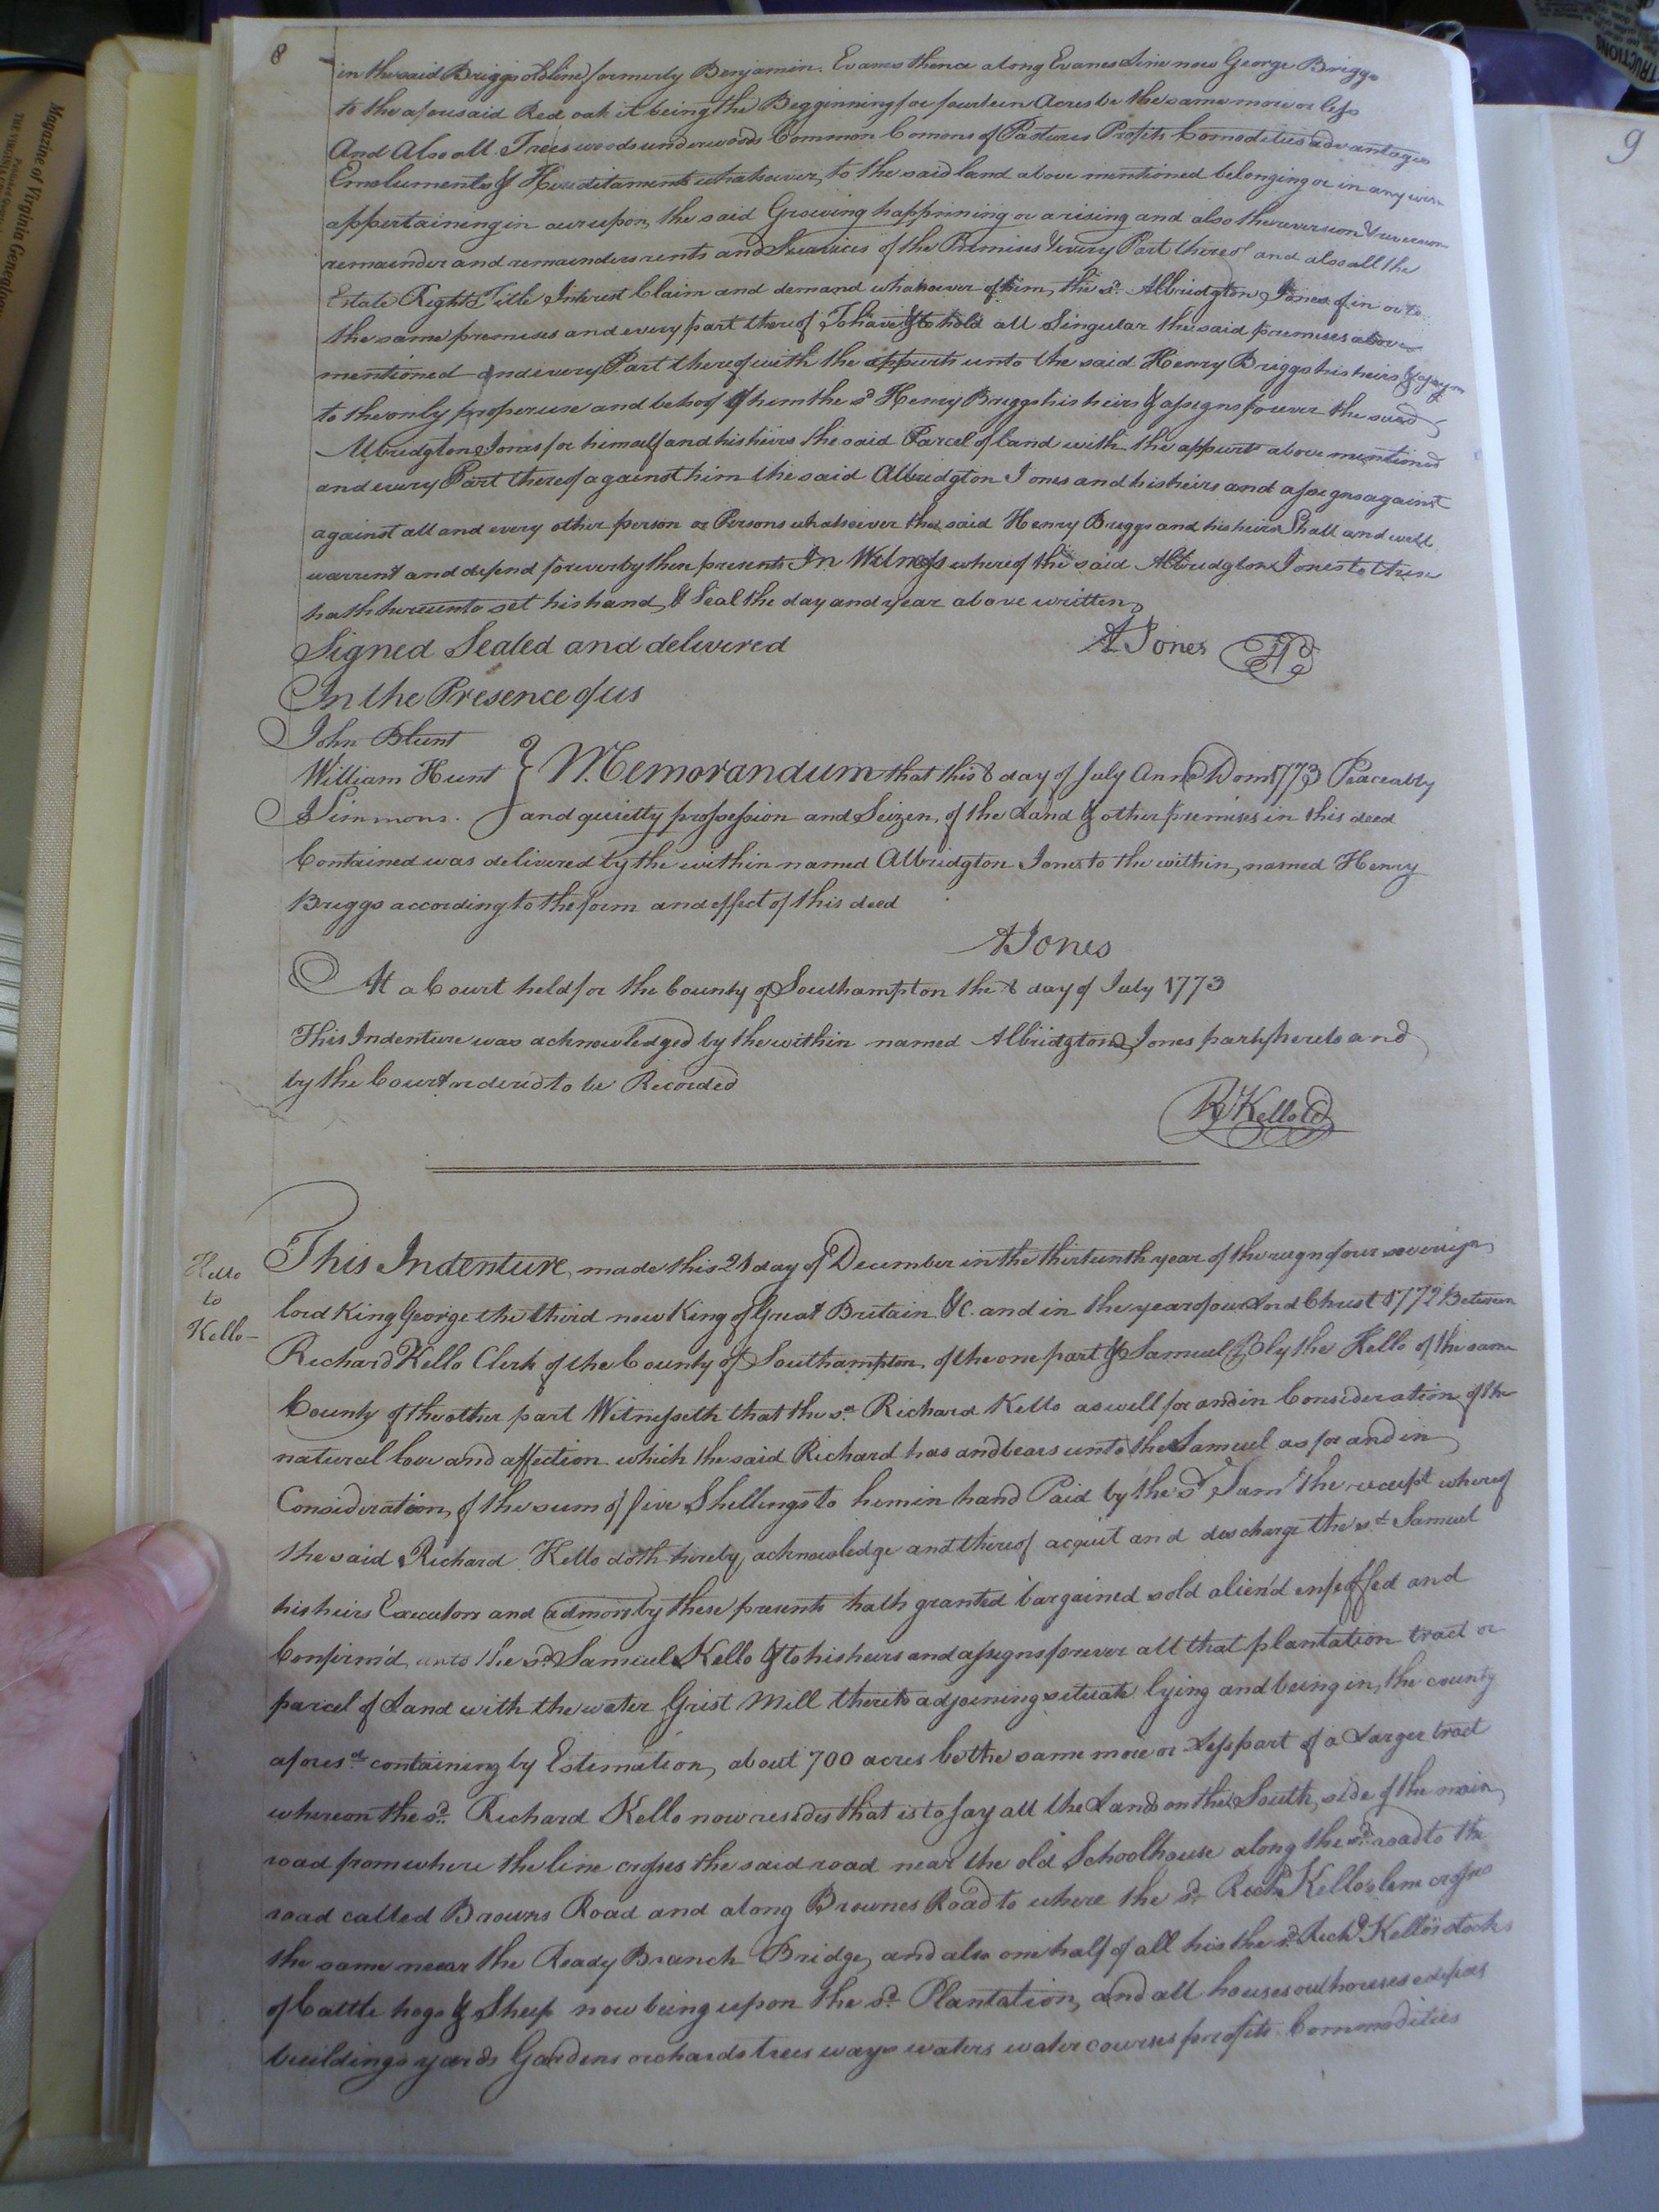 8
in the said Briggs old line formerly Benjamin Evans thence along Evans Line now George Briggs
to the aforesaid Red oak it being the Begginning for fourteen Acres be the same more or less
And Also all Trees woods underwoods Common Comons of Pastures Profits Comodities advantages
Emoluments & Hereditaments whatsoever, to the said land above mentioned belonging or in any wise
appertaining in our upon, the said Growing happning or arising and also the reversion &
remainder and remainders rents and Services of the Premises & every Part thereof and also all the
Estate Right Title Interest Claim and demand whatsoever of him, the sd. Albridgton Jones of in or to
the same premises and every part thereof To have & to hold all Singular the said premises above
mentioned and every Part thereof with the appurts unto the said Henry Briggs his heirs & assigns
to the only proper use and behoof of him the sd Henry Briggs his heirs & assigns forever the said
Albridgton Jones for himself and his heirs the said Parcel of land with the appurts above mentioned
and every Part thereof against him the said Albridgton Jones and his heirs and assigns against
against all and every other person or Persons whatsoever the said Henry Briggs and his heirs Shall and will
warrent and defend forever by these presents In Witness whereof the said Albridgton Jones to these
hath hereunto set his hand & Seal the day and year above written
Signed Sealed and delivered A Jones
In the Presence of us
John Blunt
William Hunt } Memorandum that this 8 day of July Anno Dom 1773 Peaceably
J Simmons. and quietly possession and Seizen, of the Land & other premises in this deed
Contained was delivered by the within named Albridgton Jones to the within named Henry
Briggs according to the form and effect of this deed
A Jones
At a Court held for the County of Southampton the 8 day of July 1773
This Indenture was acknowledged by the within named Albridgton Jones party hereto and
by the Court ordered to be Recorded
R Kello
Kello
to
Kello
This Indenture, made this 21 day of December in the thirteenth year of the reign of our sovereign
lord King George the third now King of Great Britain &c. and in the year of our Lord Christ 1772 Between
Richard Kello Clerk of the County of Southampton, of the one part & Samuel Blythe Kello of the same
County of the other part Witnesseth that the sd. Richard Kello as well for and in Consideration of the
natural love and affection which the said Richard has and bears unto the Samuel as for and in
Consideration, of the sum of five Shillings to him in hand Paid by the sd Saml the receipt whereof
the said Richard Kello doth hereby acknowledge and thereof acquit and discharge the sd Samuel
his heirs Executors and admors by these presents hath granted bargained sold alien'd enfeoffed and
Confirm'd unto the sd. Samuel Kello & to his heirs and assigns forever all that plantation tract or
parcel of Land with the water Grist Mill thereto adjoining situate lying and being in, the county
aforesd containing by Estimation, about 700 acres be the same more or Less part of a Larger tract
whereon the sd. Richard Kello now resides that is to say all the Land on the South, side of the main
road from where the line crosses the said road near the old Schoolhouse along the sd. road to the
road called Browns Road and along Brownes Road to where the sd. Richd Kello's line crosses
the same near the Ready Branch Bridge, and also one half of all his the sd. Richd Kello's stocks
of Cattle hogs & Sheep now being upon the sd. Plantation, and all houses outhouses edifices
buildings yards Gardens orchards trees ways waters watercourses profits Commodities
9
Magazine of Virginia